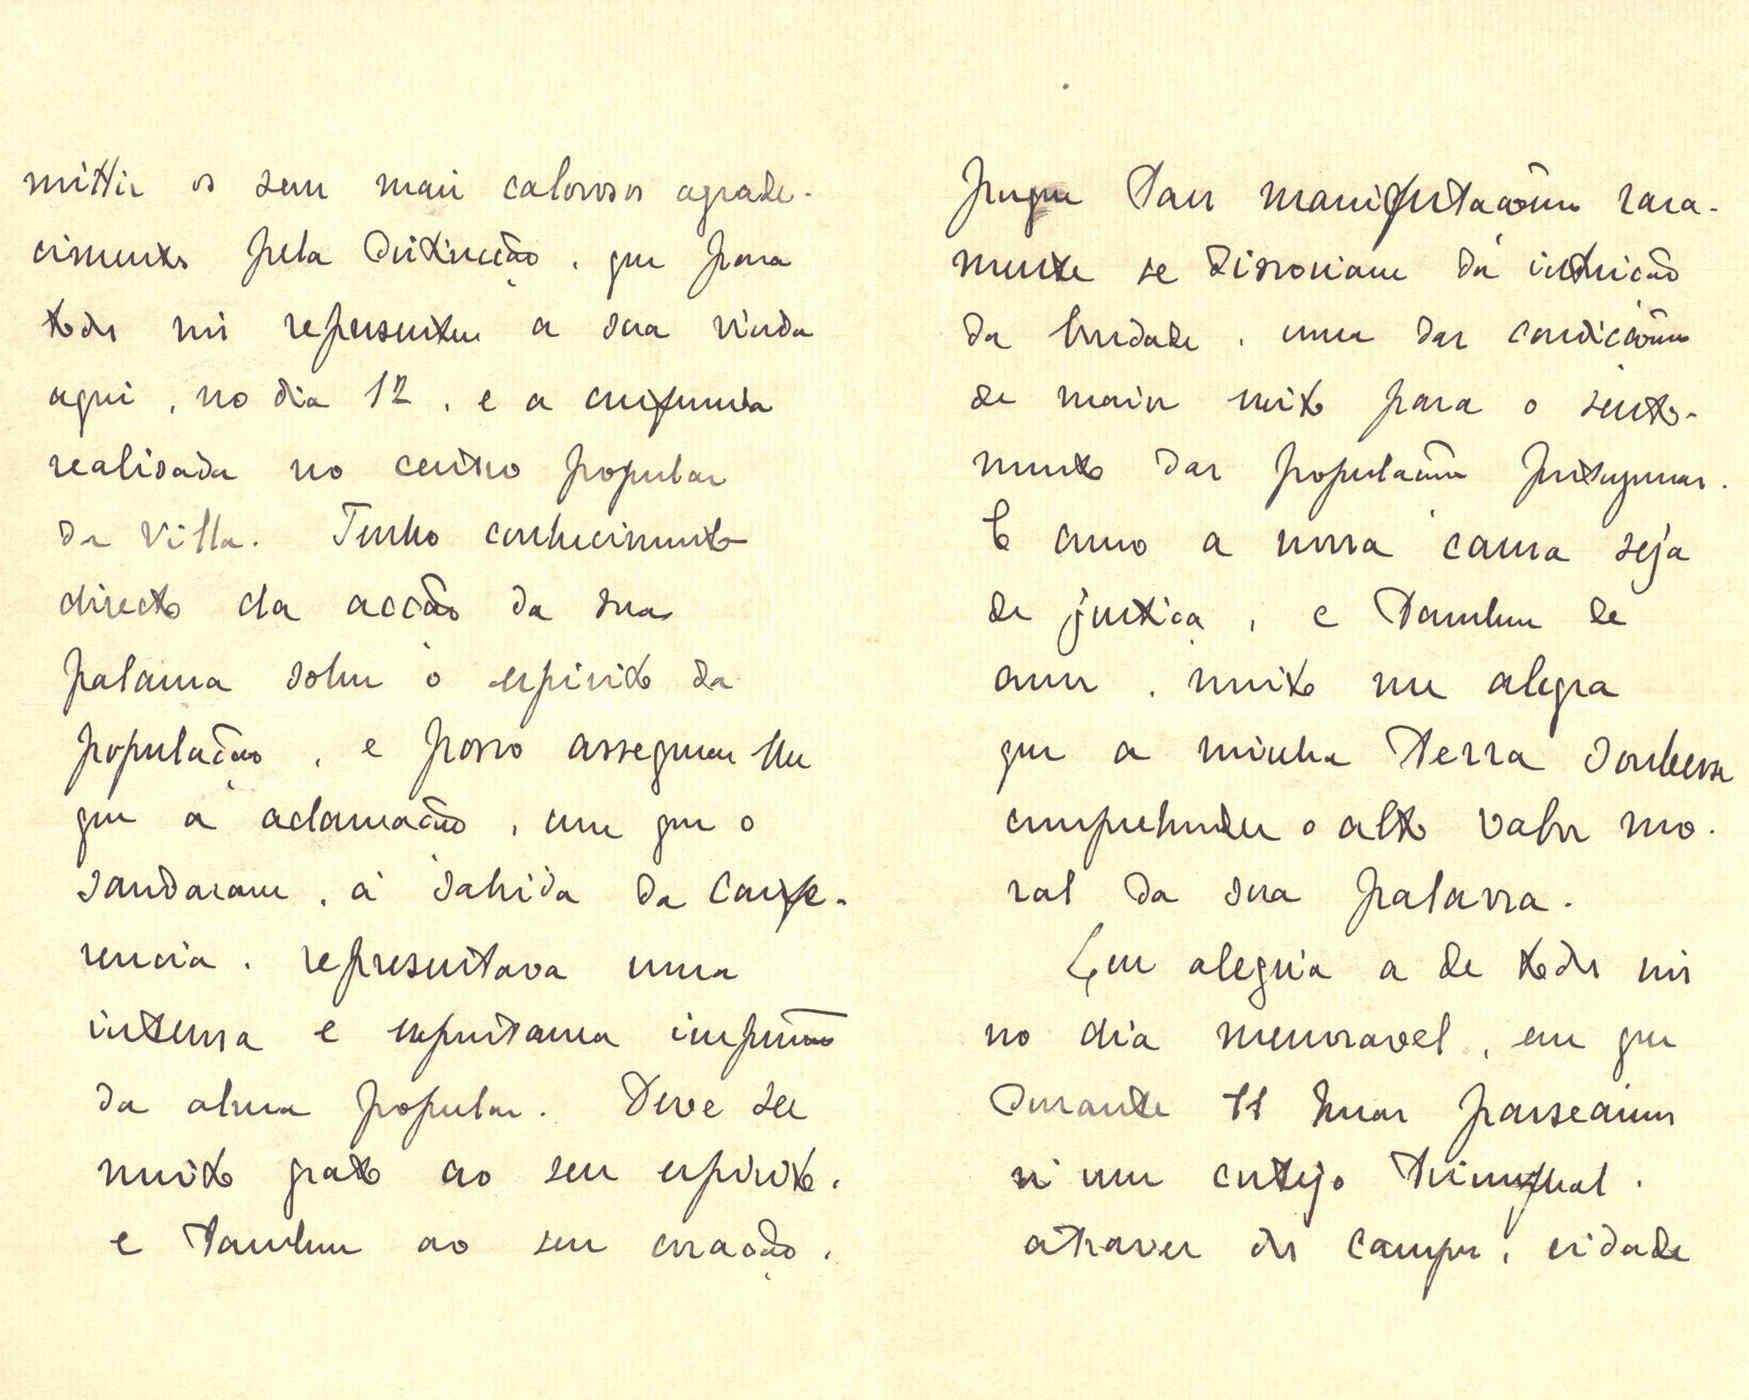 mittir os seus mais calorosos agrade-
cimentos pela distincção, que para
todos nós representou a sua vinda
aqui, no dia 12, e a conferencia
realisada no centro popular
da Villa. Tenho conhecimento
directo da acção da sua
palavra sobre o espirito da
população, e posso assegurar lhe
que a aclamação, com que o
saudaram, á sahida da confe-
rencia, representava uma
intensa e espontanea impressão
da alma popular. Deve ser
muito grato ao seu espirito,
e tambem ao seu coração,
porque taes manifestações rara-
mente se dissociam da intuição
da bondade, uma das condições
de maior exito para o senti-
mento das populações portuguezas.
E como a nossa causa seja
de justiça, e tambem de
amor, muito me alegra
que a minha terra soubesse
comprehender o alto valor mo-
ral da sua palavra.
Que alegria a de todos nós
no dia memoravel, em que
durante 11 horas passeámos
n'um cortejo triumphal,
atravez os campos, cidade